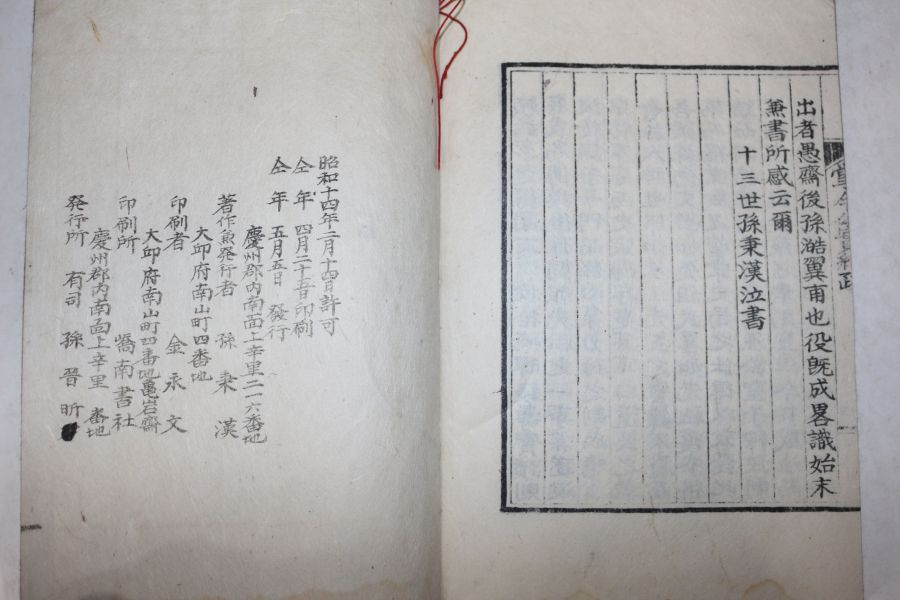 出者愚齋後孫澔翼甫也役旣成畧識始末
兼書所感云爾
十三世孫秉漢泣書
昭和十四年二月十四日許可
仝年四月二十五日印刷
仝年五月五日發行
慶州郡內南面上辛里二一六番地
著作兼發行者 孫秉漢
大邱府南山町四番地
印刷者 金永文
大邱府南山町四番地龜岩齋
印刷所 嶠南書社
慶州郡內南面上辛里 番地
發行所 有司 孫晉昕